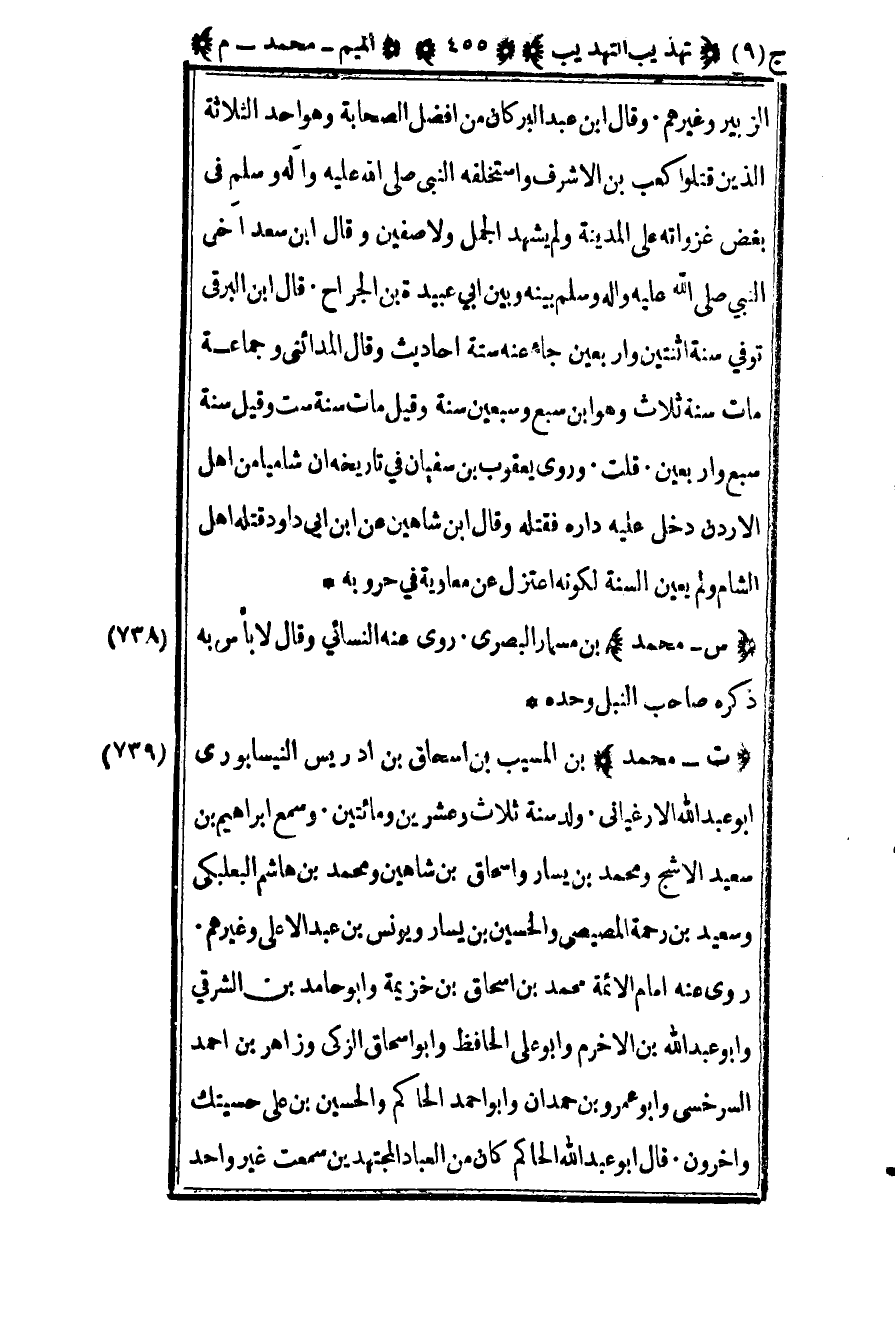 ج (٩) ﴿ تهذيب التهذيب ﴾ ﴿ ٤٥٥ ﴾ ﴿ الميم - محمد - م ﴾
الزبير وغيرهم · وقال ابن عبدالبر كان من افضل الصحابة وهو احد الثلاثة
الذين قتلوا كعب بن الاشرف واستخلفه النبي صلى الله عليه وآله وسلم فى
بعض غزواته على المدينة ولم يشهد الجمل ولا صفين و قال ابن سعد آخى
النبي صلى الله عليه واله وسلم بينه وبين ابي عبيدة بن الجراح · قال ابن البرقى
توفي سنة اثنتين واربعين جاء عنه ستة احاديث وقال المدائنى وجماعة
مات سنة ثلاث وهو ابن سبع وسبعين سنة وقيل مات سنة ست وقيل سنة
سبع واربعين · قلت · وروى يعقوب بن سفيان في تاريخه ان شاميا من اهل
الاردن دخل عليه داره فقتله وقال ابن شاهين عن ابن ابي داود قتله اهل
الشام ولم يعين السنة لكونه اعتزل عن معاوية في حروبه *
﴿ س - محمد ﴾ بن مسمار البصرى · روى عنه النسائي وقال لا بأس به (٧٣٨)
ذكره صاحب النبل وحده *
﴿ ت - محمد ﴾ بن المسيب بن اسحاق بن ادريس النيسابورى (٧٣٩)
ابو عبدالله الارغيانى · ولد سنة ثلاث وعشرين ومائتين · وسمع ابراهيم بن
سعيد الاشج ومحمد بن يسار واسحاق بن شاهين ومحمد بن هاشم البعلبكى
وسعيد بن رحمة المصيصى والحسين بن يسار ويونس بن عبدالاعلى وغيرهم ·
روى عنه امام الائمة محمد بن اسحاق بن خزيمة وابو حامد بن الشرقي
وابو عبدالله بن الاخرم وابو على الحافظ وابو اسحاق الزكى وزاهر بن احمد
السرخسى وابو عمرو بن حمدان وابو احمد الحاكم والحسين بن على حسينك
واخرون · قال ابو عبدالله الحاكم كان من العباد المجتهدين سمعت غير واحد